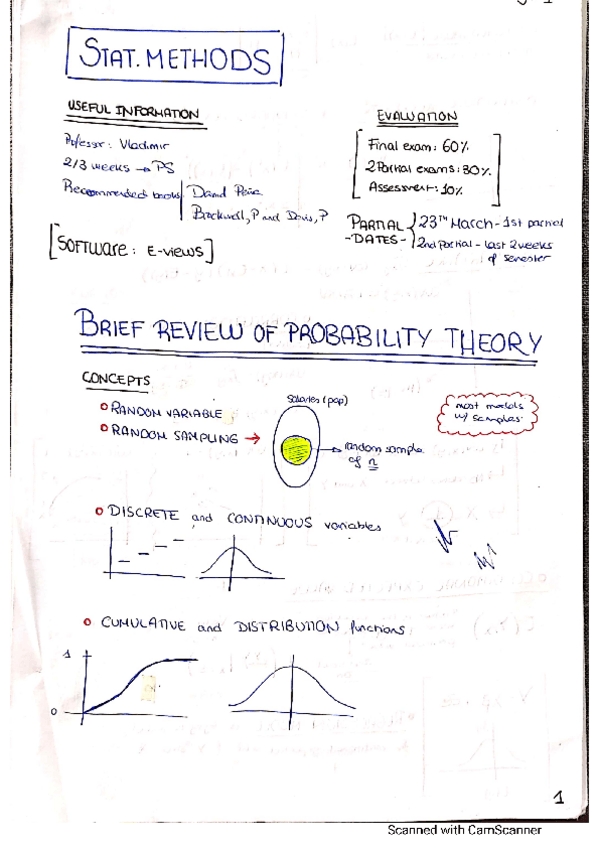 STAT. METHODS
USEFUL INFORMATION
Professor: Vladimir
2/3 weeks → PS
Recommended books: Daniel Peña
Brockwell, P and Davis, P
[SOFTWARE: E-VIEWS]
EVALUATION
Final exam: 60%
2 Partial exams: 30%
Assessment: 10%
PARTIAL
-DATES-
23TH March - 1st partial
2nd Partial - last 2 weeks
of semester
BRIEF REVIEW OF PROBABILITY THEORY
CONCEPTS
RANDOM VARIABLE
RANDOM SAMPLING →
Salaries (pop)
random sample
of n
most models
w/ samples
DISCRETE and CONTINUOUS variables
CUMULATIVE and DISTRIBUTION functions
1
0
1
Scanned with CamScanner